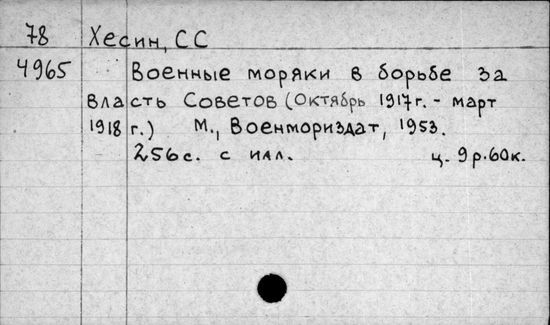 78 Хесин, СС
4965 Военные моряки в борьбе за
власть Советов (Октябрь 1917г. - март
1918 г.) М., Военмориздат, 1953.
256с. с илл. ц. 9р.60к.